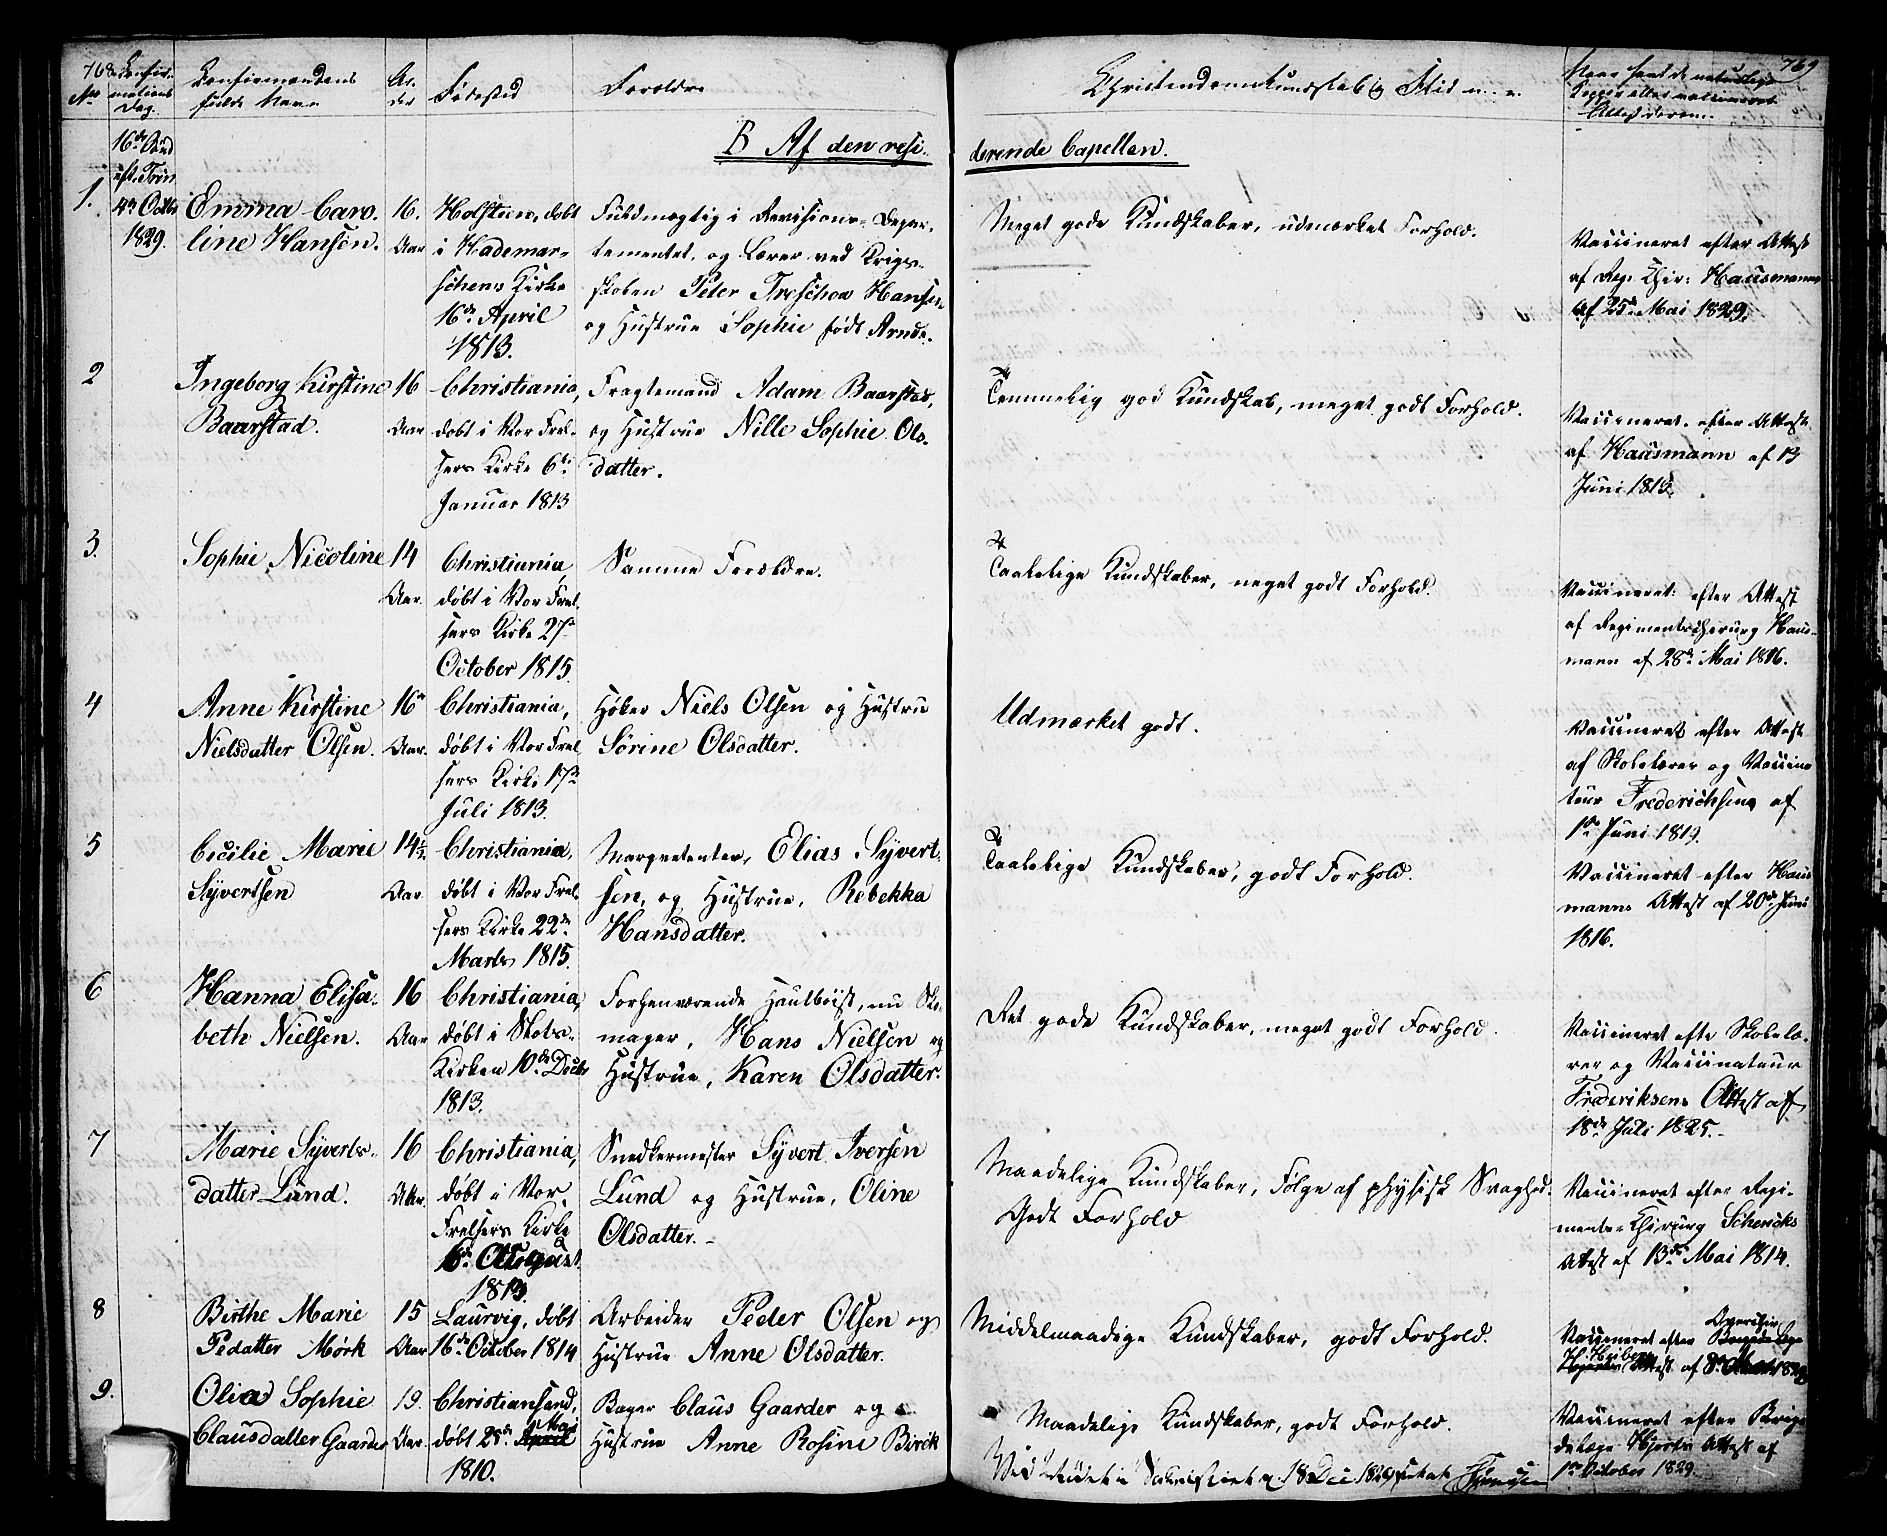 768
No
Confir-
mations
Dag.
Confirmandens
fulde Navn
Al-
der
Fødested
Forældre
Christendomskundskab og Flid m. v.
769
Naar havt de naturlige
Kopper eller vaccineret
Attest derom.
B Af den resi-
derende Capellan.
16de Sønd
eft. Trin.
4de Octbr
1829.
1.
Emma Caro-
line Hansen.
16.
Aar
Holsteen, døbt
i Hademar-
schens Kirke
16de April
1813.
Fuldmægtig i Revisions-Depar-
tementet, og Lærer ved Krigs-
skolen Peter Treschow Hansen
og Hustrue Sophie født Arnde.
Meget gode Kundskaber, udmærket Forhold.
Vaccineret efter Attest
af Reg. Chir: Hausmann
af 25de Mai 1829.
2
Ingeborg Kirstine
Baarstad.
16
Aar
Christiania,
døbt i Vor Frel-
sers Kirke 6te
Januar 1813
Fragtemand Adam Baarstad,
og Hustrue Nille Sophie Ols-
datter.
Temmelig god Kundskab, meget godt Forhold.
Vaccineret efter Attest
af Hausmann af 13
Juni 1815.
3.
Sophie Nicoline
14
Aar.
Christiania,
døbt i Vor Frel-
sers Kirke 27de
October 1815.
Samme Forældre.
Taalelige Kundskaber, meget godt Forhold.
Vaccineret efter Attest
af Regimentschirurg Haus-
mann af 28de Mai 1816.
4
Anne Kirstine
Nielsdatter Olsen.
16
Aar.
Christiania,
døbt i Vor Frel
sers Kirke 17de
Juli 1813.
Høker Niels Olsen og Hustru
Sørine Olsdatter.
Udmærket godt.
Vaccineret efter Attest
af Skolelærer og Vaccina
teur Frederichsen af
1ste Juni 1819.
5
Cicilie Marie
Syvertsen
14½
Aar
Christiania,
døbt i Vor Frel-
sers Kirke 22de
Marts 1815.
Marqvetenter, Elias Syvert-
sen, og Hustrue, Rebekka
Hansdatter.
Taalelige Kundskaber, godt Forhold.
Vaccineret efter Haus
manns Attest af 20de Juni
1816.
6
Hanna Elisa-
beth Nielsen.
16
Aar
Christiania,
døbt i Slots-
Kirken 10de Decbr
1813.
Forhenværende Hautboist, nu Sko-
mager, Hans Nielsen og
Hustrue, Karen Olsdatter.
Ret gode Kundskaber, meget godt Forhold.
Vaccineret efte Skolelæ-
rer og Vaccinateur
Frederiksens Attest af
18de Juli 1825.
7
Marie Syverts-
datter Lund.
16
Aar.
Christiania,
døbt i Vor
Frelsers Kirke
6te August
1813.
Snedkermester Syvert Iversen
Lund og Hustrue, Oline
Olsdatter.
Maadelige Kundskaber, Følge af physisk Svaghed.
Godt Forhold
Vaccineret efter Regi-
ments-Chirurg Schencks
Attest af 13de Mai 1814.
8
Birthe Marie
Pedatter Mørk
15
Aar
Laurvig, døbt
16de October 1814
Arbeider Peder Olsen og
Hustrue Anne Olsdatter.
Middelmaadige Kundskaber, godt Forhold.
Vaccineret efter
Attest af
9.
Olia Sophie
Clausdatter Gaarder
19.
Aar.
Christiansand,
døbt 28de April
Mai
1810.
Bager Claus Gaarder og
Hustrue Anne Rosine Birck
Maadelige Kundskaber, godt Forhold.
Vaccineret efter Briga
delæge Hjorts Attest af
1ste October 1829.